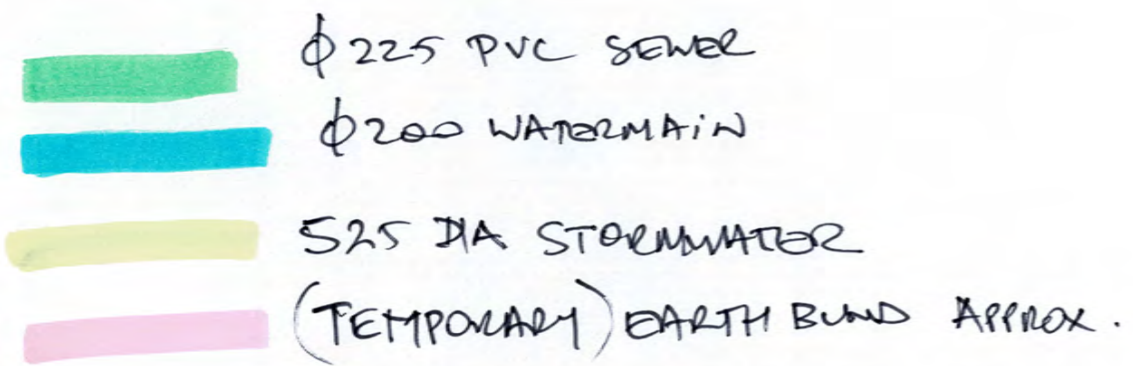 ϕ225 PVC SEWER
ϕ200 WATERMAiN
525 DIA STORMWATER
(TEMPORARY) EARTH BUND APPROX.